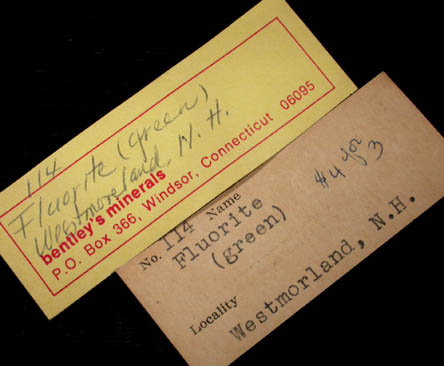 114
Fluorite (green)
Westmoreland N. H.
bentley's minerals
P.O. Box 366, Windsor, Connecticut 06095
No. 114 Name
Fluorite
(green)
#4 for 3
Locality
Westmorland, N.H.